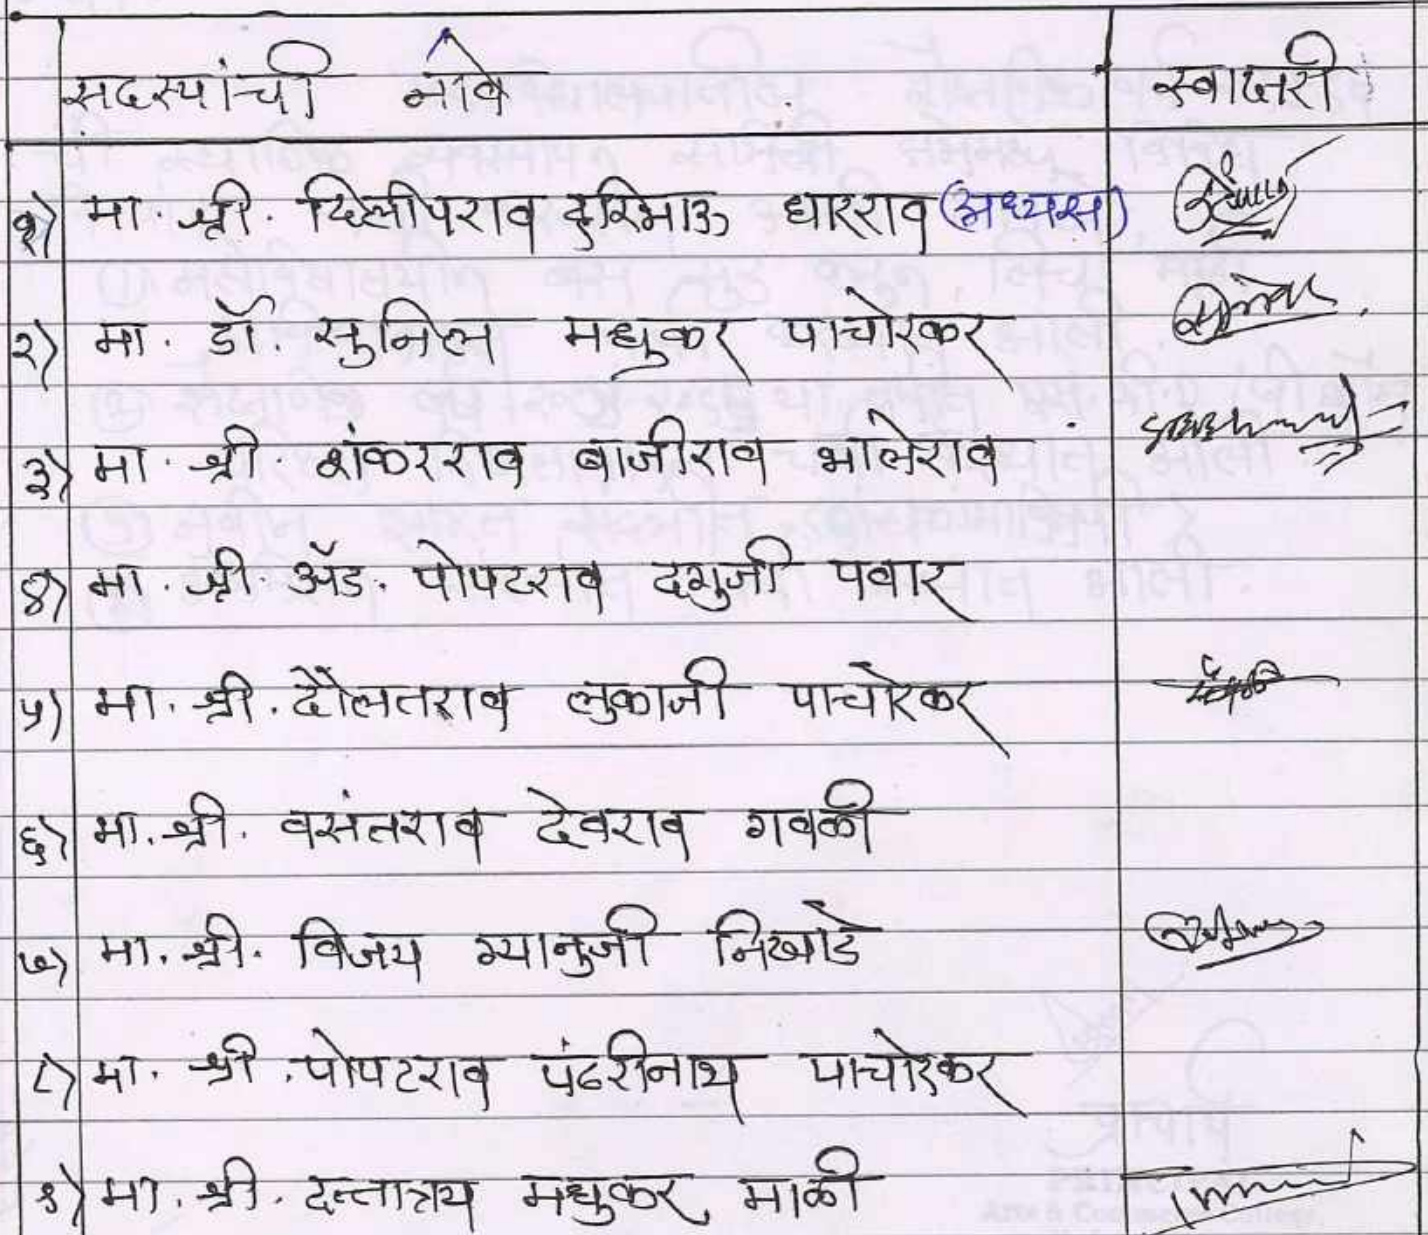 सदस्यांची नावे स्वाक्षरी
१) मा. श्री. दिलीपराव हरिभाऊ धारराव (अध्यक्ष)
२) मा. डॉ. सुनिल मधुकर पाचोरकर
३) मा. श्री शंकरराव बाजीराव भालेराव
४) मा. श्री. ॲड. पोपटराव दगुजी पवार
५) मा. श्री. दौलतराव तुकाजी पाचोरकर
६) मा. श्री. वसंतराव देवराव गवळी
७) मा. श्री. विजय ग्यानुजी निखाडे
८) मा. श्री. पोपटराव पंढरीनाथ पाचोरकर
९) मा. श्री. दत्तात्रय मधुकर माळी